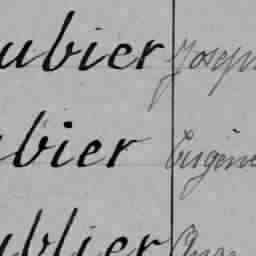 ubier Joseph
bier Eugène
ublier